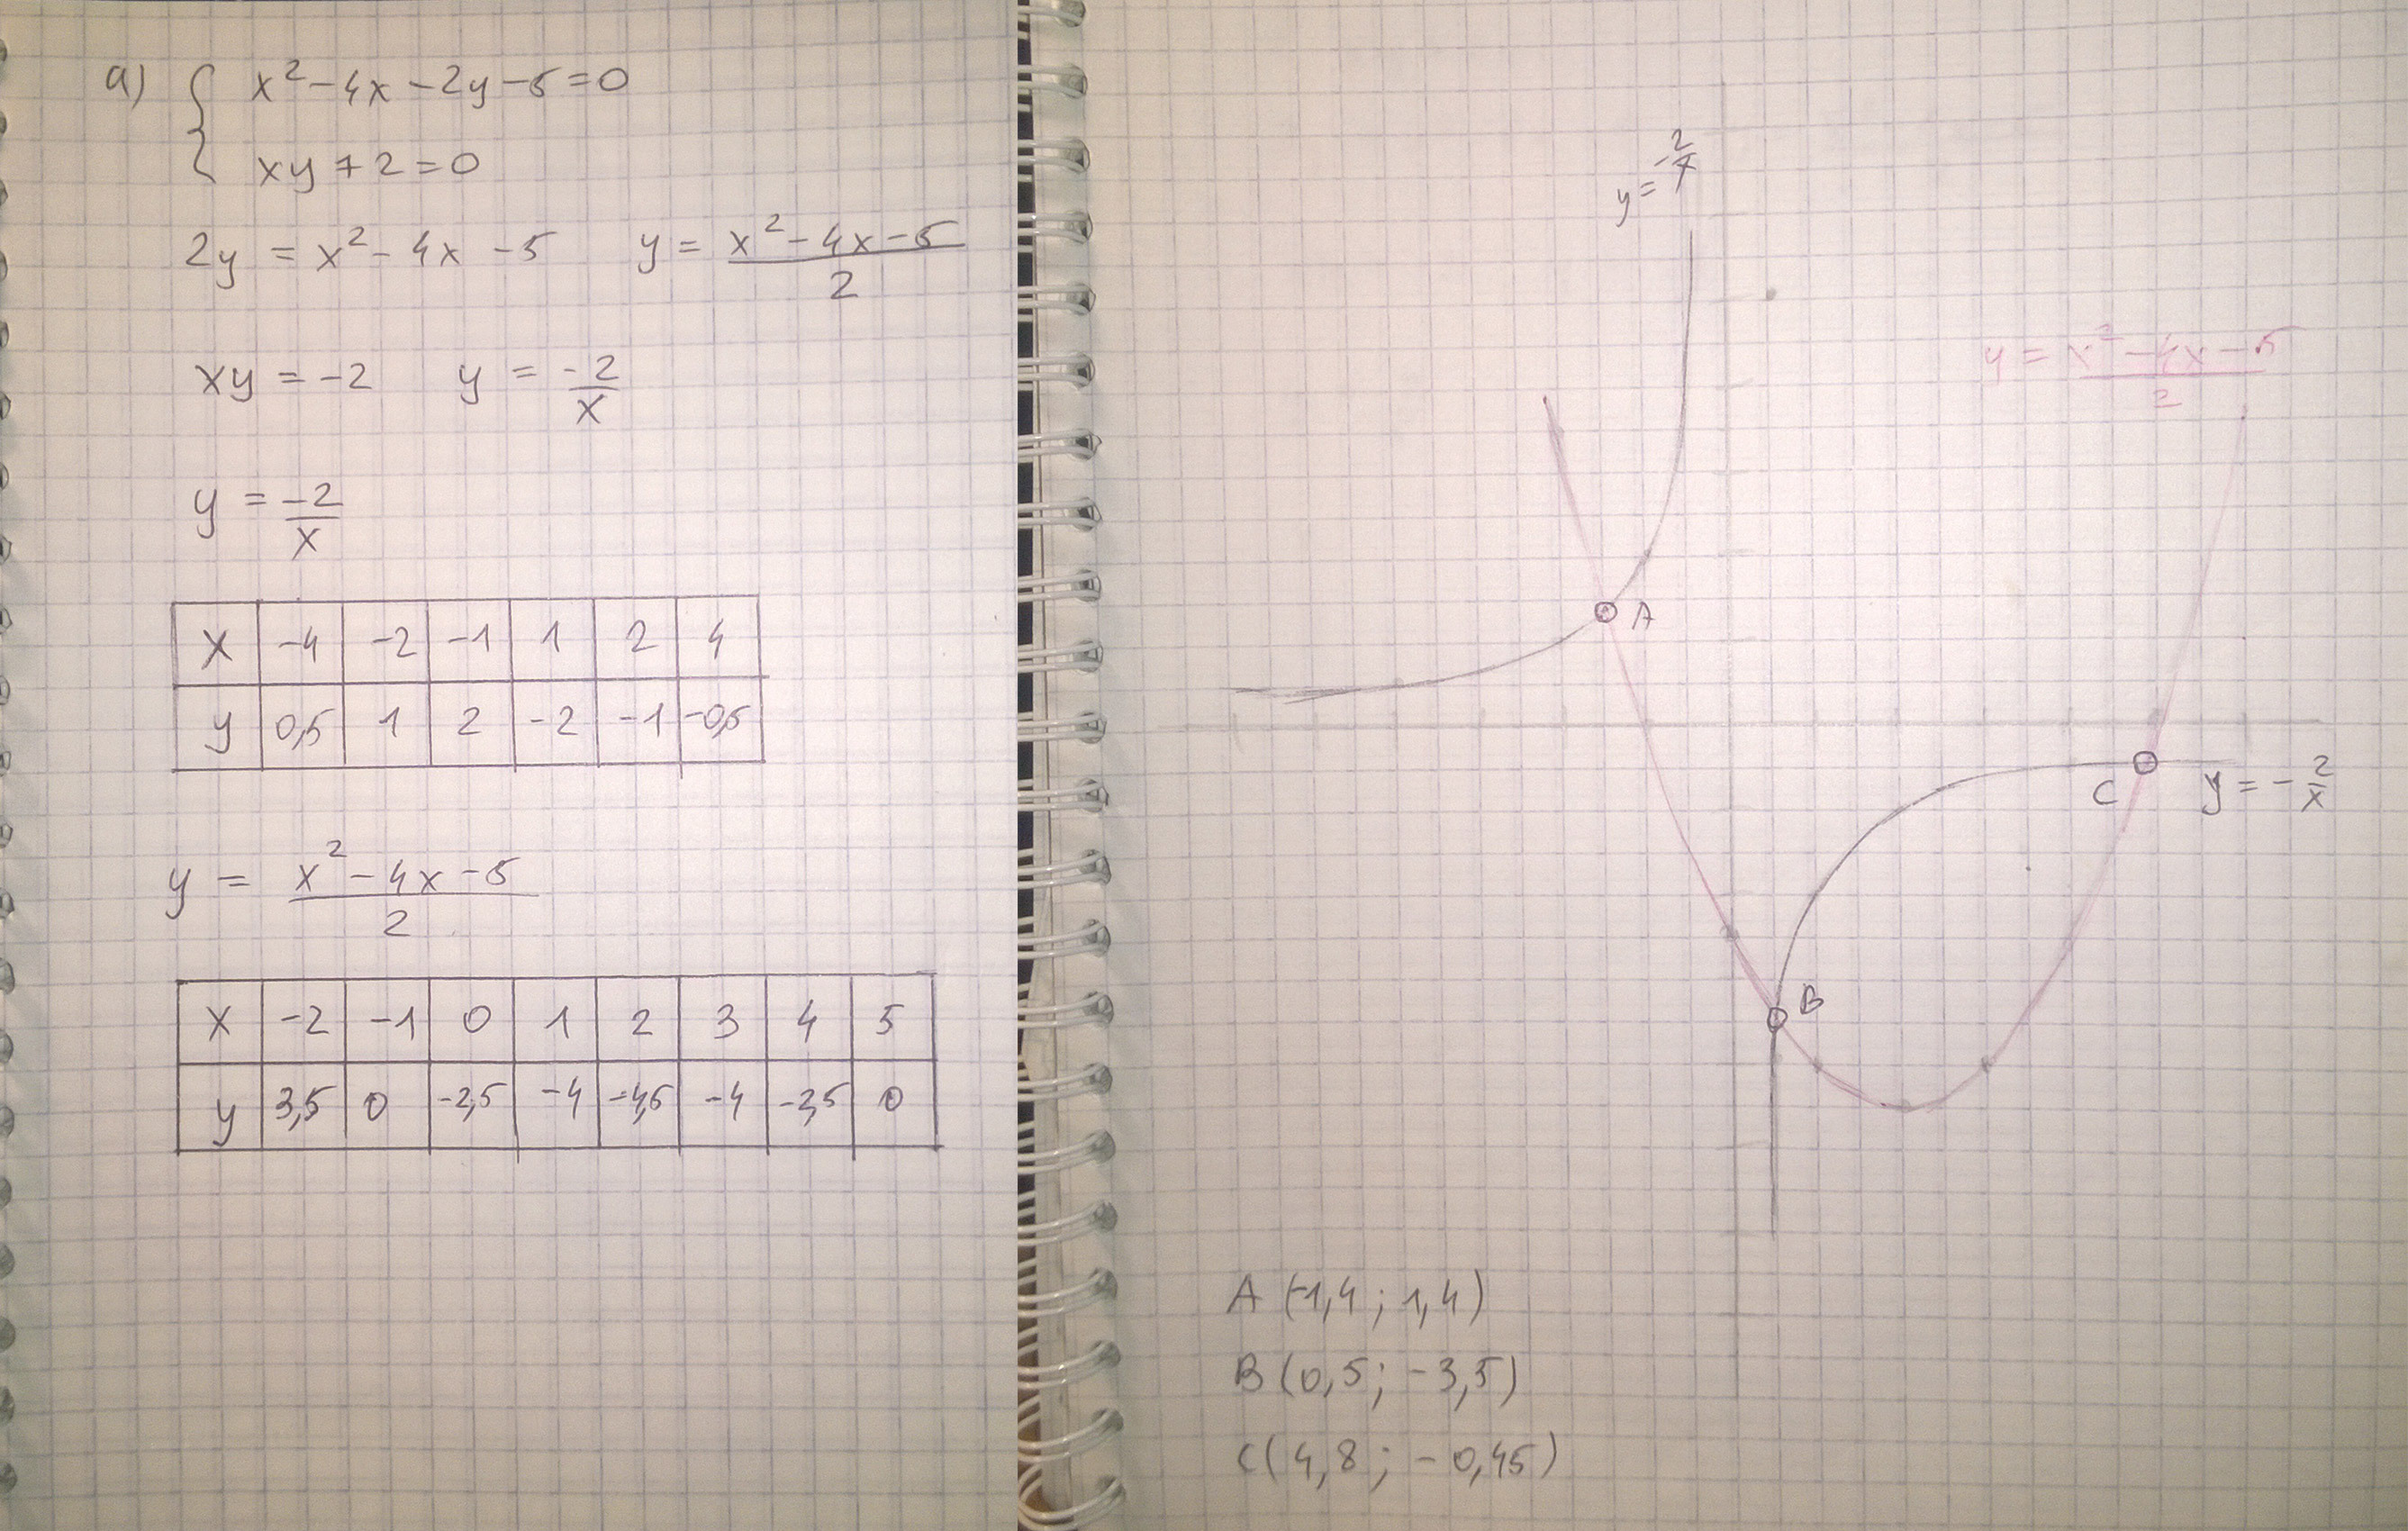 a) { x² - 4x - 2y - 5 = 0
xy + 2 = 0
2y = x² - 4x - 5 y = (x² - 4x - 5)/2
xy = -2 y = -2/x
y = -2/x
x -4 -2 -1 1 2 4
y 0,5 1 2 -2 -1 -0,5
y = (x² - 4x - 5)/2
x -2 -1 0 1 2 3 4 5
y 3,5 0 -2,5 -4 -4,5 -4 -2,5 0
y = -2/x
y = (x² - 4x - 5)/2
A
C y = -2/x
B
A (-1,4 ; 1,4)
B (0,5 ; -3,5)
C (4,8 ; -0,45)